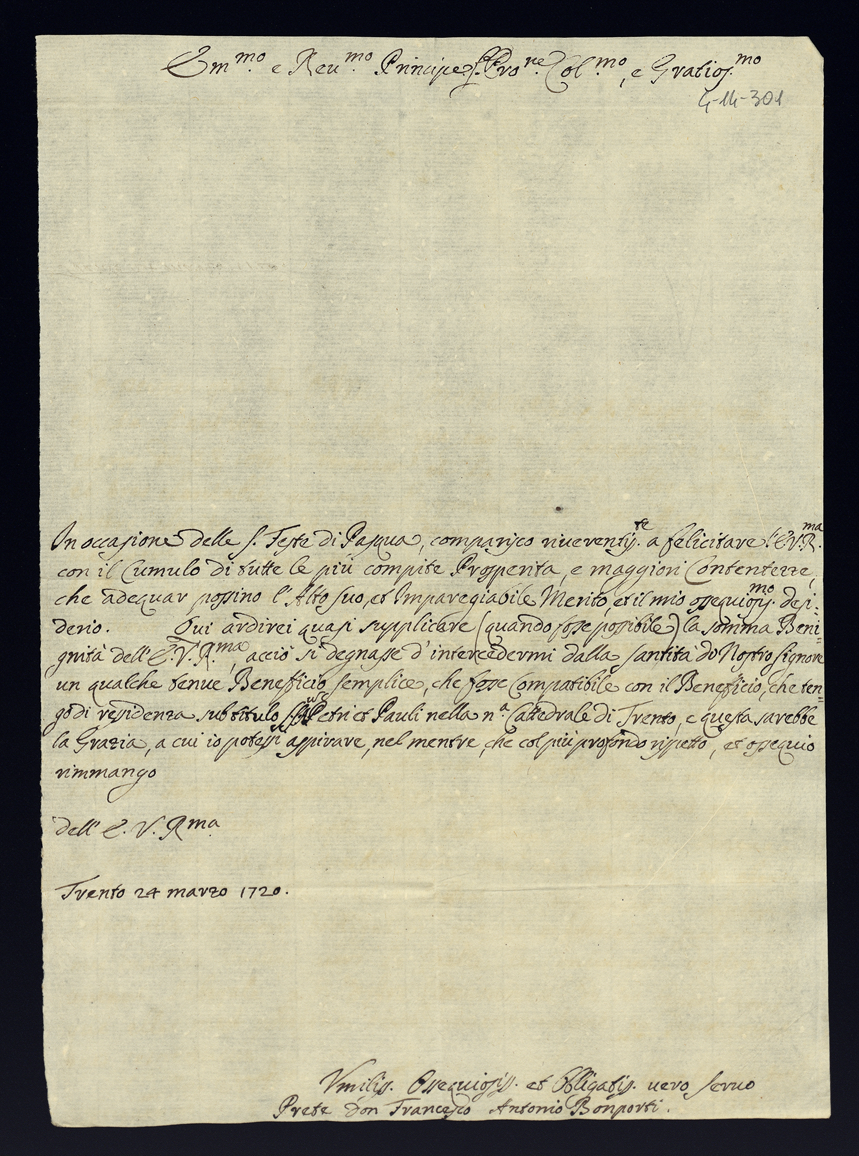 Em.mo e Reu.mo Principe Pro.ne Col.mo, e Gratios.mo
4-14-301
In occasione delle S. Feste di Pasqua, comparisco riuerentis.te a felicitare l'E.V.R.ma
con il Cumulo di tutte le più compite Prosperità, e maggiori Contentezze,
che adequar possino l'Alto suo, et Impareggiabile Merito, et il mio ossequiosis.mo desi-
derio. Qui ardirei quasi supplicare (quando fosse possibile) la somma Beni-
gnità dell'E.V.R.ma, acciò si degnasse d'intercedermi dalla Santità di Nostro Signore
un qualche tenue Benefficio semplice, che fosse Compatibile con il Beneficio, che ten=
go di ressidenza sub titulo SS. Petri et Pauli nella n.a Cattedrale di Trento, e questa sarebbe
la Grazia, a cui io potessi aspirare, nel mentre, che col più profondo rispetto, et ossequio
rimmango
dell'E.V.R.ma
Trento 24 marzo 1720.
Vmiliss. Ossequiosiss. et Obligatis. uero seruo
Prete don Francesco Antonio Bonporti.